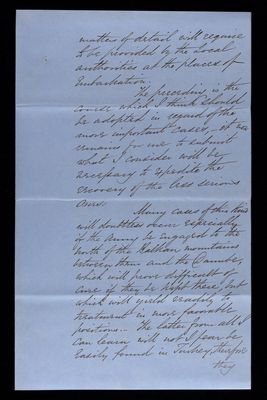 matters of detail will require
to be provided by the local
authorities at the places of
Embarkation.
The preceding is the
course which I think should
be adopted in regard of the
more important cases, it now
remains for me to submit
what I consider will be
necessary to expedite the
recovery of the less serious
ones.
Many cases of this kind
will doubtless occur especially
if the Army be engaged to the
north of the Balkan mountains
between them and the Danube,
which will prove difficult of
cure if they be kept there, but
which will yield readily to
treatment in more favorable
positions. The latter from all I
can learn will not I fear be
easily found in Turkey, therefore
they